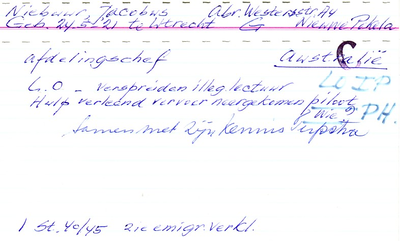 Niebuur, Jacobus Abr. Westersstr. A4
Geb. 24-5-21 te Utrecht G Nieuwe Pekela
C
afdelingschef Australië
L.O - verspreiden illeg lectuur LO IP
Hulp verleend vervoer neergekomen piloot
PH.
Samen met zijn kennis
1 St. 40/45 zie emigr. verkl.